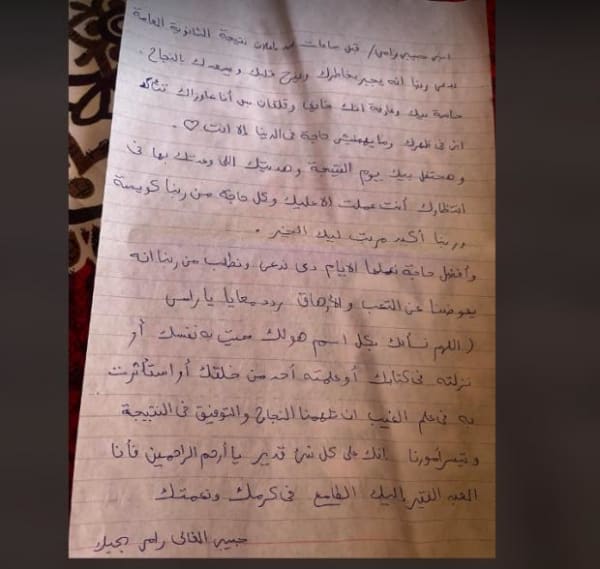 ابنى حبيبى رامى / قبل ساعات من إعلان نتيجة الثانوية العامة
بدعى ربنا انه يجبر بخاطرك ويفرح قلبك ويسعدك بالنجاح
حاسة بيك وعارفة انك خايف وقلقان بس أنا عاوزاك تتأكد
انى فى ظهرك وما يهمنيش حاجة فى الدنيا إلا انت ♡ .
و هحتفل بيك يوم النتيجة وهديتك اللى وعدتك بها فى
انتظارك أنت عملت الا عليك وكل حاجة من ربنا كويسة
وربنا أكيد مرتب ليك الخير .
وأفضل حاجة نعملها الايام دى ندعى ونطلب من ربنا انه
يعوضنا عن التعب والإرهاق ردد معايا يا رامى
( اللهم نسألك بكل اسم هو لك سميت به نفسك أو
نزلته فى كتابك أو علمته أحد من خلقك أو استأثرت
به فى علم الغيب ان تلهمنا النجاح والتوفيق فى النتيجة
وتيسر أمورنا إنك على كل شئ قدير يا أرحم الراحمين فأنا
العبد الفقير إليك الطامع فى كرمك ونعمتك
حبيبى الغالى رامى بحبك